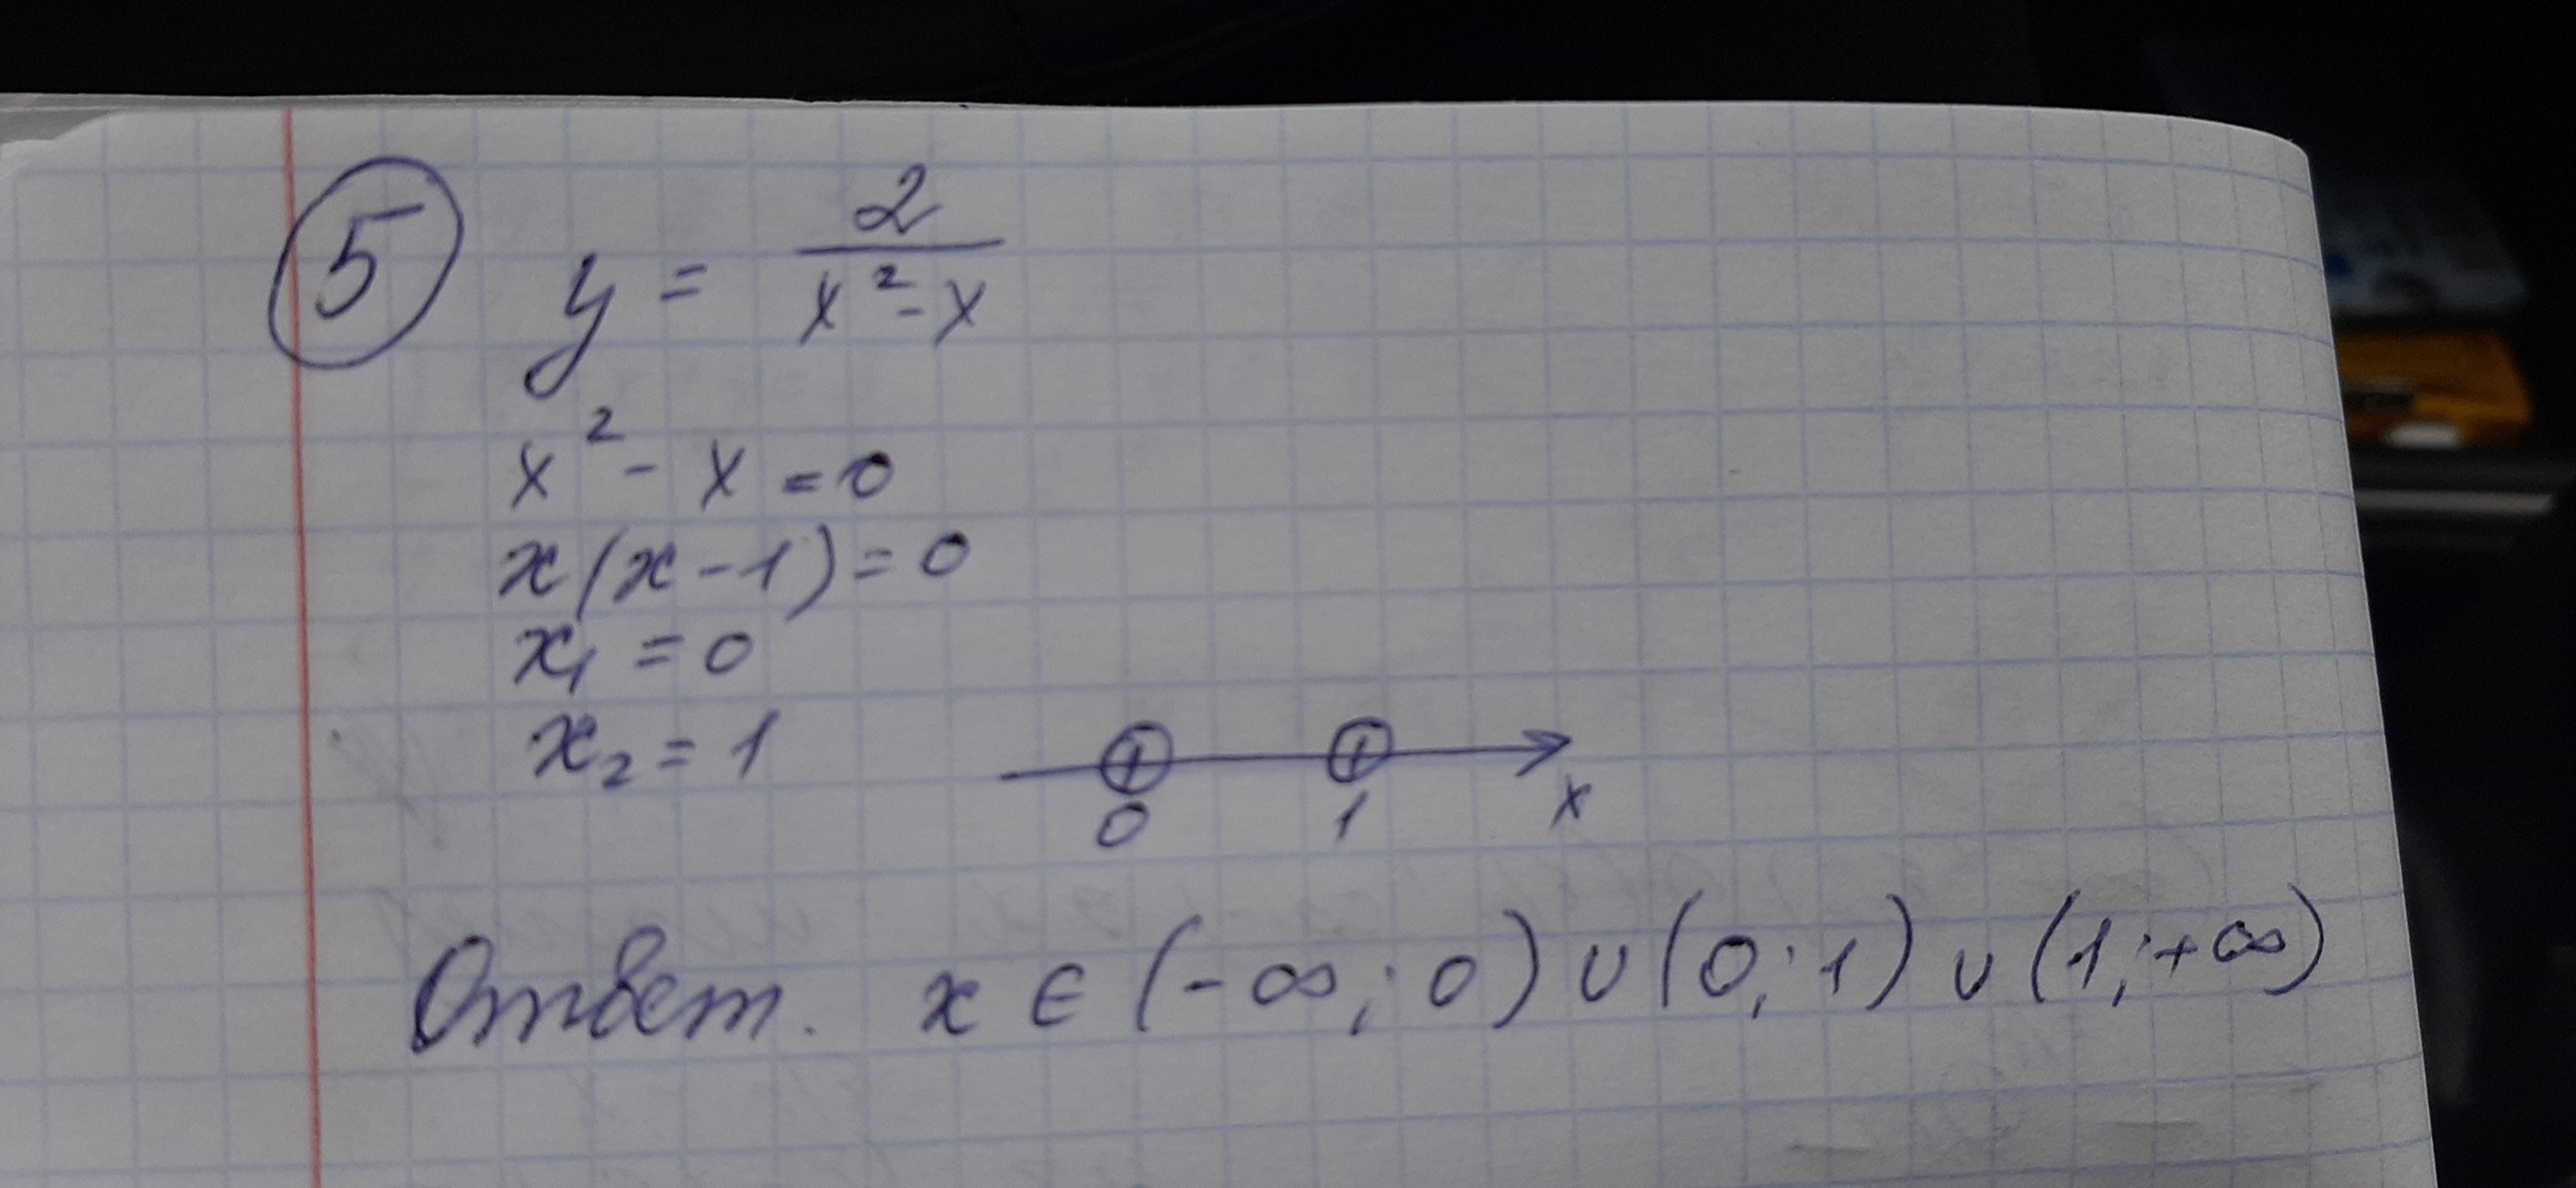 5 y = 2/(x² - x)
x² - x = 0
x(x - 1) = 0
x₁ = 0
x₂ = 1
0 1 x
Ответ. x ∈ (-∞; 0) ∪ (0; 1) ∪ (1; +∞)